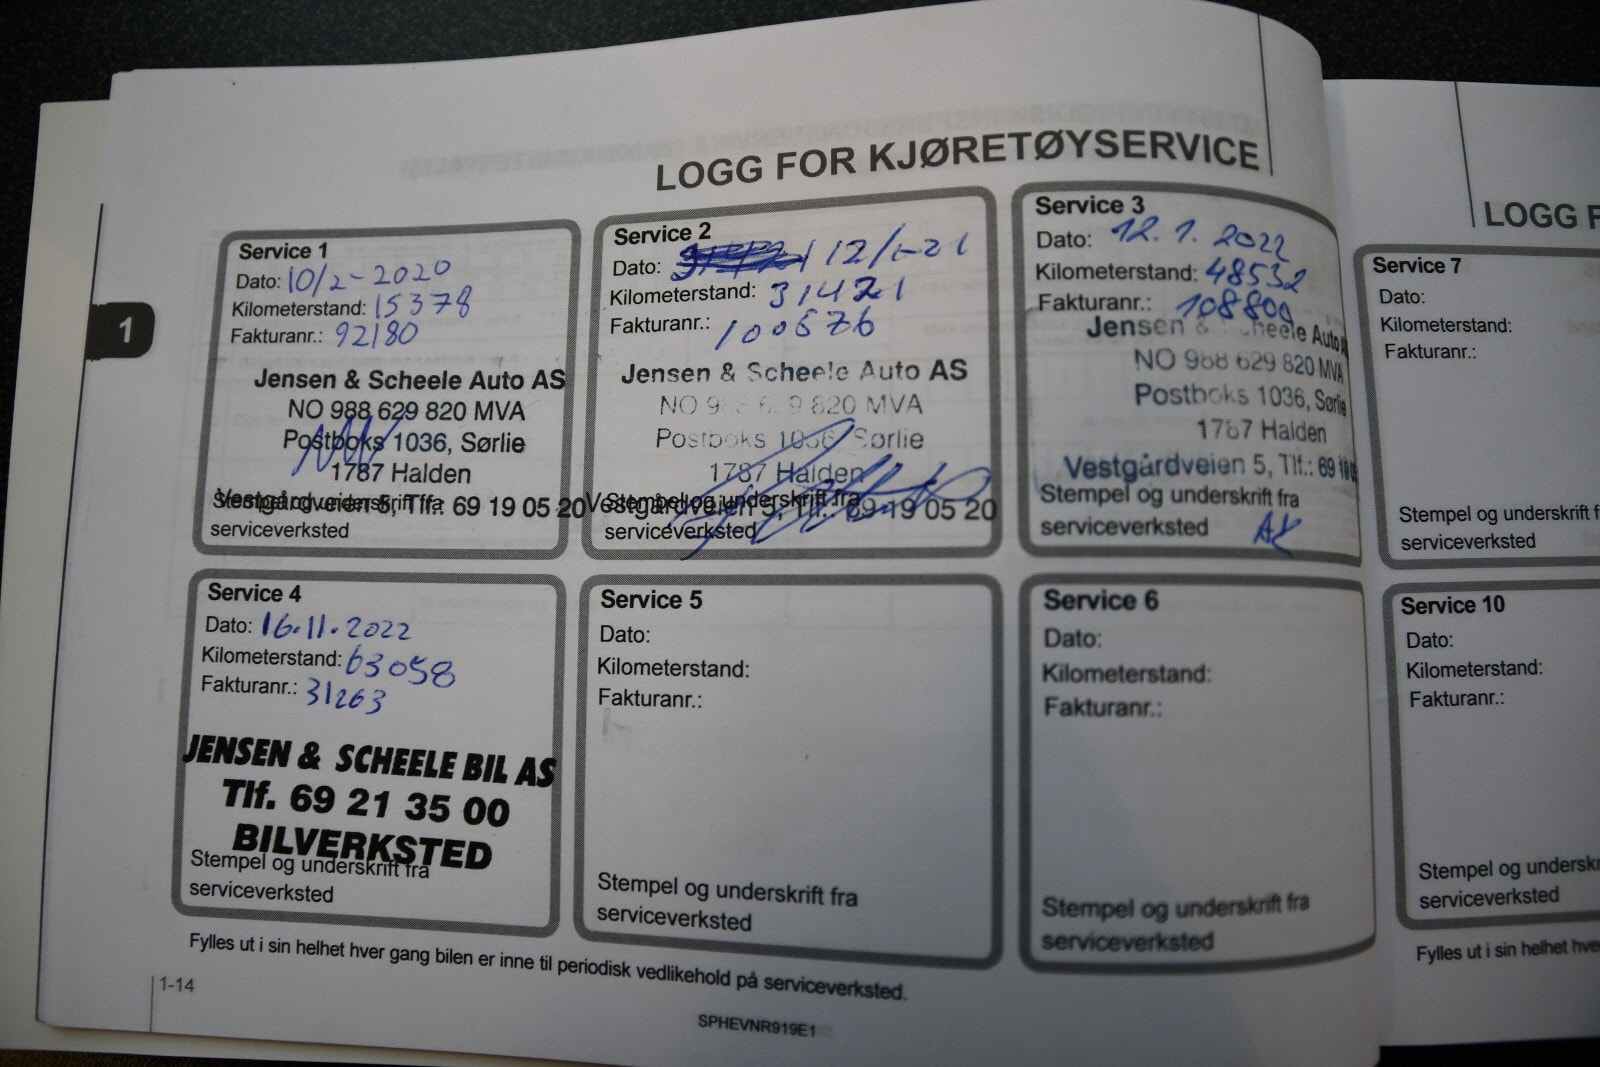 LOGG FOR KJØRETØYSERVICE
Service 1
Dato: 10/2-2020
Kilometerstand: 15378
Fakturanr.: 92180
Jensen & Scheele Auto AS
NO 988 629 820 MVA
Postboks 1036, Sørlie
1787 Halden
Vestgårdveien 5, Tlf.: 69 19 05 20
Stempel og underskrift fra
serviceverksted
Service 2
Dato: 12/1-21
Kilometerstand: 31421
Fakturanr.: 100576
Jensen & Scheele Auto AS
NO 988 629 820 MVA
Postboks 1036, Sørlie
1787 Halden
Vestgårdveien 5, Tlf.: 69 19 05 20
Stempel og underskrift fra
serviceverksted
Service 3
Dato: 12.1.2022
Kilometerstand: 48532
Fakturanr.: 108809
Jensen & Scheele Auto
NO 988 629 820 MVA
Postboks 1036, Sørlie
1787 Halden
Vestgårdveien 5, Tlf.: 69 19 05
Stempel og underskrift fra
serviceverksted
1
Service 4
Dato: 16.11.2022
Kilometerstand: 63058
Fakturanr.: 31263
JENSEN & SCHEELE BIL AS
Tlf. 69 21 35 00
BILVERKSTED
Stempel og underskrift fra
serviceverksted
Service 5
Dato:
Kilometerstand:
Fakturanr.:
Stempel og underskrift fra
serviceverksted
Service 6
Dato:
Kilometerstand:
Fakturanr.:
Stempel og underskrift fra
serviceverksted
Fylles ut i sin helhet hver gang bilen er inne til periodisk vedlikehold på serviceverksted.
1-14
SPHEVNR919E1
LOGG F
Service 7
Dato:
Kilometerstand:
Fakturanr.:
Stempel og underskrift f
serviceverksted
Service 10
Dato:
Kilometerstand:
Fakturanr.:
Stempel og underskr
serviceverksted
Fylles ut i sin helhet hve